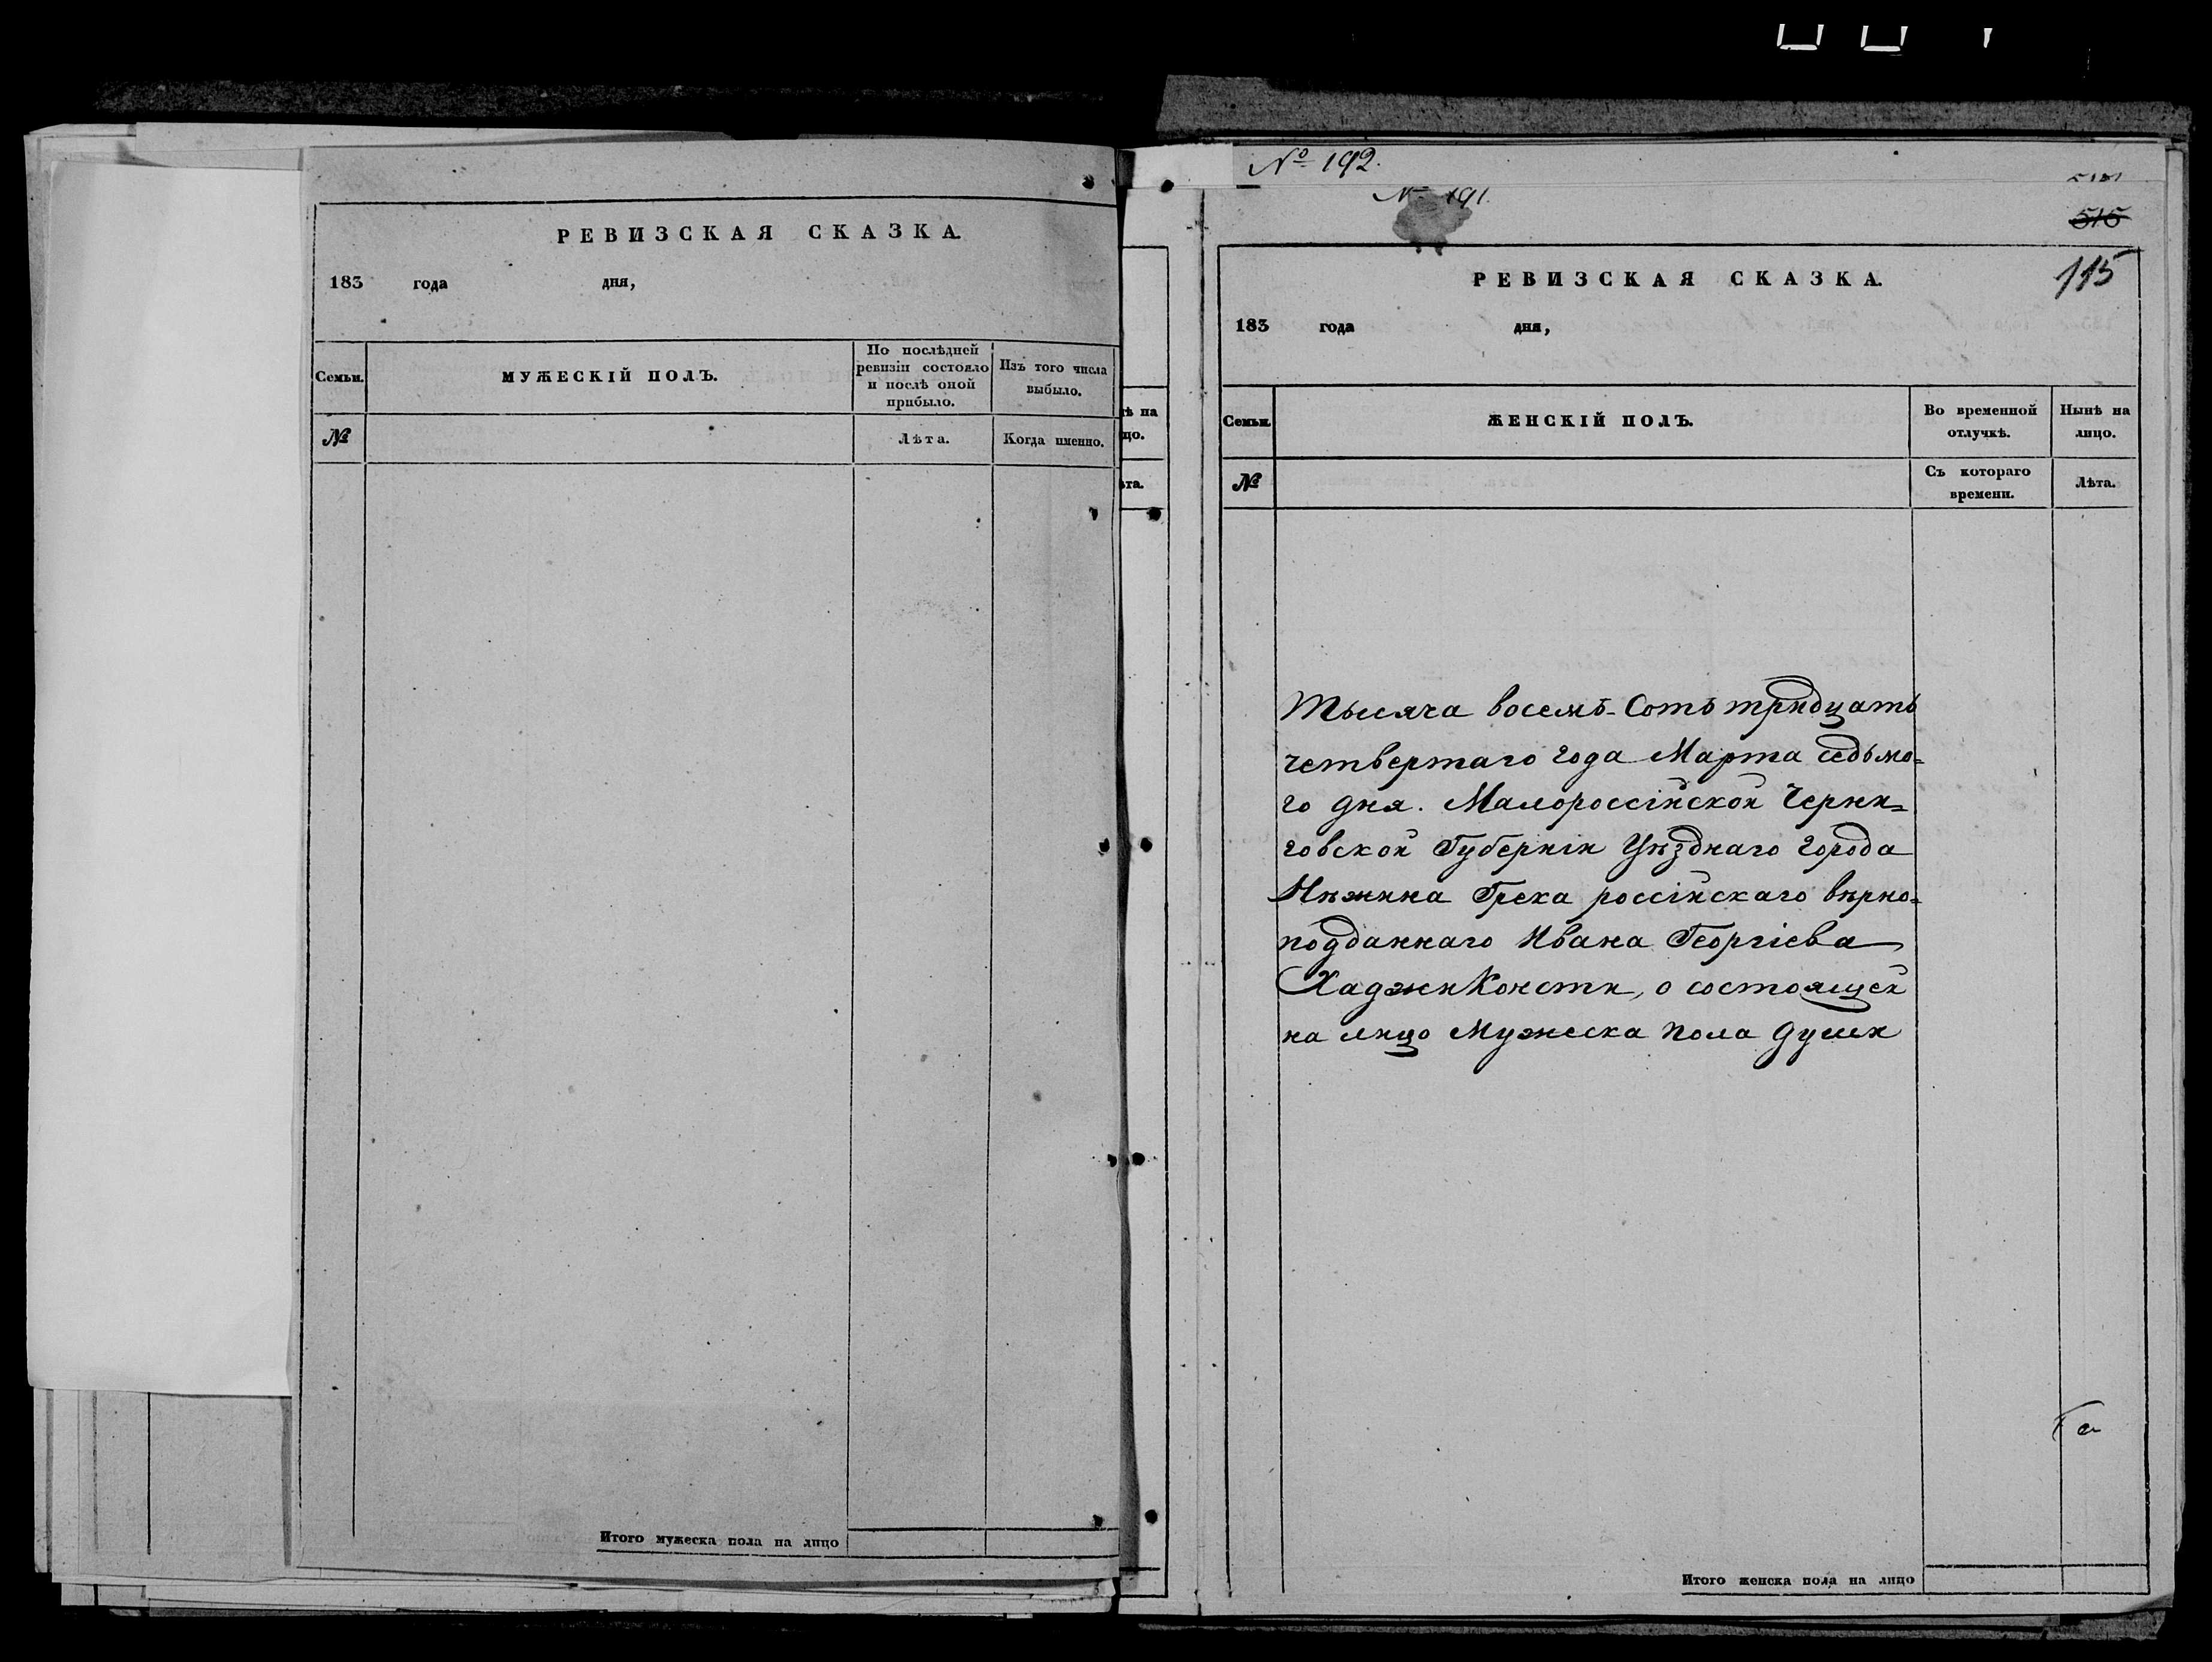 РЕВИЗСКАЯ СКАЗКА.
183 года дня,
Семьи.
МУЖЕСКІЙ ПОЛЪ.
По послѣдней
ревизіи состояло
и послѣ оной
прибыло.
Изъ того числа
выбыло.
№
Лѣта.
Когда именно.
Итого мужеска пола на лицо
№ 192.
№ 191.
515
115
РЕВИЗСКАЯ СКАЗКА.
183 года дня,
Семьи.
ЖЕНСКІЙ ПОЛЪ.
Во временной
отлучкѣ.
Нынѣ на
лицо.
№
Съ котораго
времени.
Лѣта.
Тысяча восемь-Сотъ тридцать
четвертаго года Марта седьмо=
го дня. Малороссійской Черни=
говской Губерніи Уѣзднаго города
Нѣжина Грека россійскаго вѣрно=
подданнаго Ивана Георгіева
ХаджиКонсти, о состоящей
на лицо Мужеска пола души
Итого женска пола на лицо